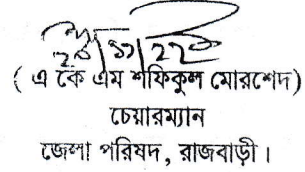 ( এ কে এম শফিকুল মোরশেদ)
চেয়ারম্যান
জেলা পরিষদ, রাজবাড়ী।